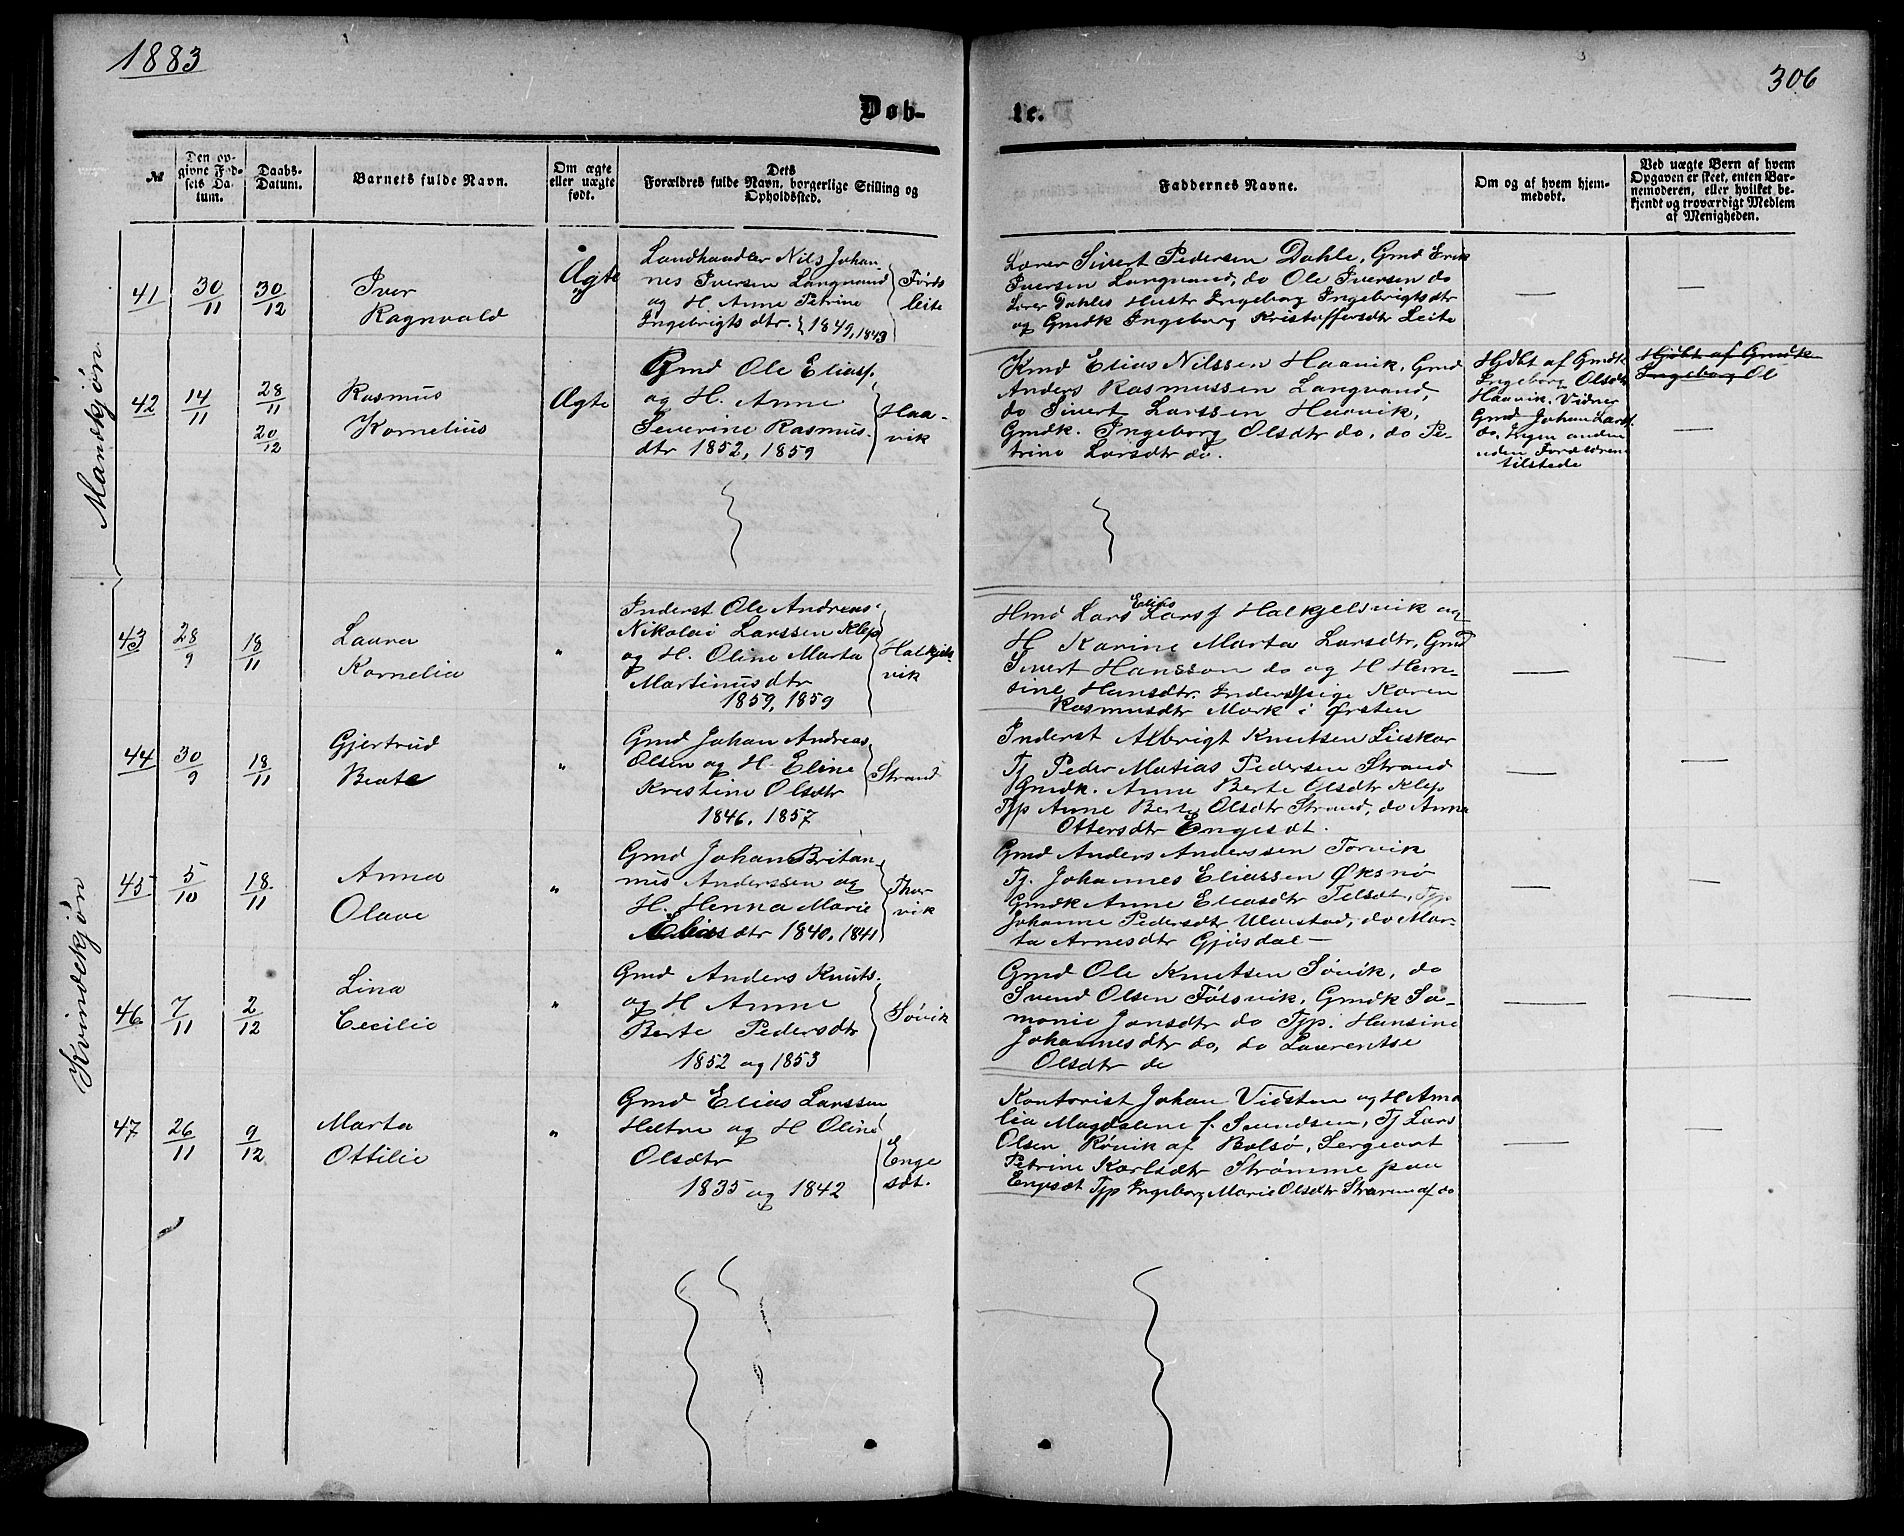 1883
306
Døb-
te.
№
Den op-
givne Fød-
sels Da-
tum.
Daabs-
Datum.
Barnets fulde Navn.
Om ægte
eller uægte
født.
Dets
Forældres fulde Navn, borgerlige Stilling og
Opholdssted.
Faddernes Navne.
Om og af hvem hjem-
medøbt.
Ved uægte Børn af hvem
Opgaven er skeet, enten Bar-
nemoderen, eller hvilket be-
kjendt og troværdigt Medlem
af Menigheden.
Mandkjøn
41
30/11
30/12
Iver
Ragnvald
Ægte
Landhandler Nils Johan-
nes Iversen Langvand
og H. Anne Petrine
Ingebrigtsdtr. 1849, 1849
Førds
leite
Lærer Sivert Pedersen Dahle, Gmd Erik
Iversen Langvand, do Ole Iversen do
Lærer Dahles Hustr Ingeborg Ingebrigtsdtr
og Gmdk Ingeborg Kristoffersdtr Leite
—
—
42
14/11
28/11
20/12
Rasmus
Kornelius
Ægte
Gmd Ole Elias
og H. Anne
Severine Rasmus-
dtr 1852, 1859
Haa-
vik
Kmd Elias Nilssen Haavik, Gmd
Anders Rasmussen Langvand,
do Sivert Larssen Haavik,
Gmdk. Ingeborg Olsdtr do, do Pe-
trine Larsdtr do.
Hjdbt af Gmdk
Ingeborg Olsdtr
Haavik. Vidner
Gmd Johan Lars
do. Ingen anden
uden Forældrene
tilstede
Hjdbt af Gmdk
Ingeborg Ol
—
Kvindekjøn
43
28/9
18/11
Laura
Kornelia
"
Inderst Ole Andreas
Nikolai Larssen Klep
og H. Oline Marta
Martinusdtr
1859, 1859
Halkjels-
vik
Elias
Hmd Lars Lars Halkjelsvik og
H Karine Marta Larsdtr, Gmd
Sivert Hansson do og H Han-
sine Hansdtr. Inderstpige Karen
Rasmusdtr Mork i Ørsten
—
—
44
30/9
18/11
Gjertrud
Beate
"
Gmd Johan Andreas
Olsen og H. Eline
Kristine Olsdtr
1846, 1857
Strand
Inderst Albrigt Knutsen Lieskar
Tj Peder Matias Pedersen Strand
Gmdk. Anne Berte Olsdtr Klep
Tjp Anne Berte Olsdtr Strand, do Anna
Ottersdtr Engesdt.
—
—
45
5/10
18/11
Anna
Olave
"
Gmd Johan Britan-
nus Anderssen og
H. Henna Marie
Eliasdtr 1840, 1841
Thor
vik
Gmd Anders Anderssen Torvik
Tj. Johannes Eliassen Øksnø
Gmdk Anne Eliasdtr Telsdt, Tjp
Johanne Pedersdtr Ulvestad, do Mar-
ta Arnesdtr Gjøsdal —
—
—
46
7/11
2/12
Lina
Cecilie
"
Gmd Anders Knuts.
og H Anne
Berte Pedersdtr
1852 og 1853
Søvik
Gmd Ole Knutsen Søvik, do
Svend Olsen Følsvik, Gmdk Sa-
monie Jonsdtr do Tjp. Hansine
Johannesdtr do, do Laurentse
Olsdtr do
—
—
47
26/11
9/12
Marta
Ottilie
"
Gmd Elias Larssen
Haltne og H Oline
Olsdtr
1835 og 1842
Enge
sdt.
Kontorist Johan Vidsten og H Ama
lia Magdalene f. Svendsen, Tj Lars
Olsen Røvik af Bolsø, Sergeant
Petrine Karlsdtr Strømme paa
Engesdt Tjp Ingeborg Marie Olsdtr af do
—
—